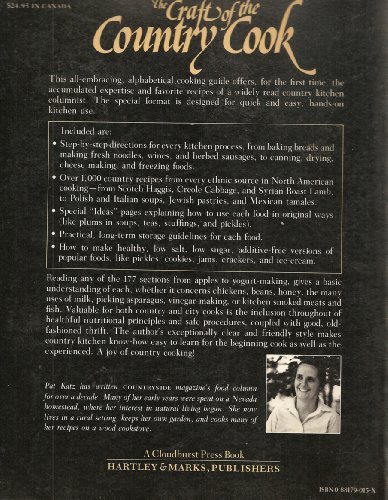 $24.95 IN CANADA
the Craft of the
Country Cook
This all-embracing, alphabetical cooking guide offers, for the first time, the
accumulated expertise and favorite recipes of a widely read country kitchen
columnist. The special format is designed for quick and easy, hands-on
kitchen use.
Included are:
• Step-by-step directions for every kitchen process, from baking breads and
making fresh noodles, wines, and herbed sausages, to canning, drying,
cheese making, and freezing foods.
• Over 1,000 country recipes from every ethnic source in North American
cooking—from Scotch Haggis, Creole Cabbage, and Syrian Roast Lamb,
to Polish and Italian soups, Jewish pastries, and Mexican tamales.
• Special "Ideas" pages explaining how to use each food in original ways
(like plums in soups, teas, stuffings, and pickles).
• Practical, long-term storage guidelines for each food.
• How to make healthy, low salt, low sugar, additive-free versions of
popular foods, like pickles, cookies, jams, crackers, and ice cream.
Reading any of the 177 sections from apples to yogurt-making, gives a basic
understanding of each, whether it concerns chickens, beans, honey, the many
uses of milk, picking asparagus, vinegar-making, or kitchen smoked meats and
fish. Valuable for both country and city cooks is the inclusion throughout of
healthful nutritional principles and safe procedures, coupled with good, old-
fashioned thrift. The author's exceptionally clear and friendly style makes
country kitchen know-how easy to learn for the beginning cook as well as the
experienced. A joy of country cooking!
Pat Katz has written COUNTRYSIDE magazine's food column
for over a decade. Many of her early years were spent on a Nevada
homestead, where her interest in natural living began. She now
lives in a rural setting, keeps her own garden, and cooks many of
her recipes on a wood cookstove.
A Cloudburst Press Book
HARTLEY & MARKS, PUBLISHERS
ISBN 0-88179-015-X